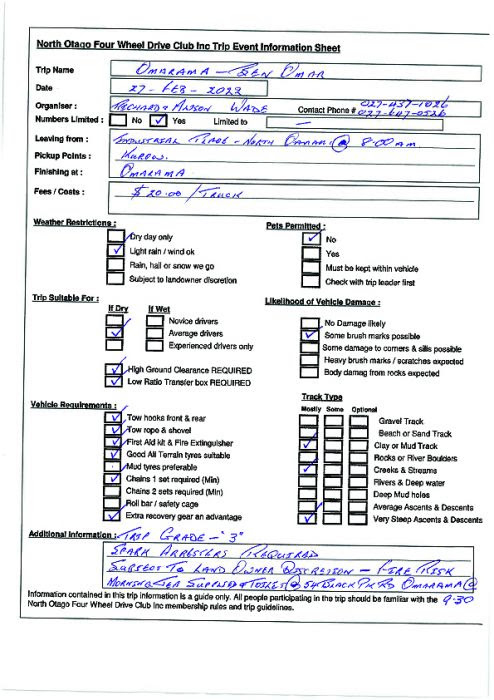 North Otago Four Wheel Drive Club Inc Trip Event Information Sheet
Trip Name OMARAMA - BEN OMAR
Date 27 - FEB - 2023
Organiser : RICHARD & ALISON WADE Contact Phone # 027-437-1026
027-647-0526
Numbers Limited : No Yes Limited to —
Leaving from : INDUSTRIAL PLACE - NORTH OAMARU @ 8:00 am
Pickup Points : KUROW.
Finishing at : OMARAMA
Fees / Costs : $20.00 / TRUCK
Weather Restrictions :
Dry day only
Light rain / wind ok
Rain, hail or snow we go
Subject to landowner discretion
Pets Permitted :
No
Yes
Must be kept within vehicle
Check with trip leader first
Trip Suitable For :
If Dry If Wet
Novice drivers
Average drivers
Experienced drivers only
High Ground Clearance REQUIRED
Low Ratio Transfer box REQUIRED
Likelihood of Vehicle Damage :
No Damage likely
Some brush marks possible
Some damage to corners & sills possible
Heavy brush marks / scratches expected
Body damag from rocks expected
Vehicle Requirements :
Tow hooks front & rear
Tow rope & shovel
First Aid kit & Fire Extinguisher
Good All Terrain tyres suitable
Mud tyres preferable
Chains 1 set required (Min)
Chains 2 sets required (Min)
Roll bar / safety cage
Extra recovery gear an advantage
Track Type
Mostly Some Optional
Gravel Track
Beach or Sand Track
Clay or Mud Track
Rocks or River Boulders
Creeks & Streams
Rivers & Deep water
Deep Mud holes
Average Ascents & Descents
Very Steep Ascents & Descents
Additional Information : TRIP GRADE - "3"
SPARK ARRESTERS REQUIRED
SUBJECT TO LAND OWNER DISCRESSION - FIRE RISK
MORNING TEA SUPPLIED & TOILETS @ BLACK PK RD OMARAMA @
9-30
Information contained in this trip information is a guide only. All people participating in the trip should be familiar with the
North Otago Four Wheel Drive Club Inc membership rules and trip guidelines.